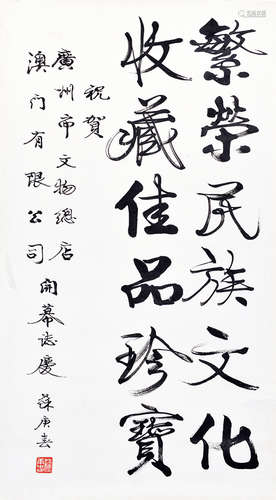 繁榮民族文化
收藏佳品珍寶
祝賀
廣州市文物總店
澳门有限公司開幕誌慶
蘇庚春